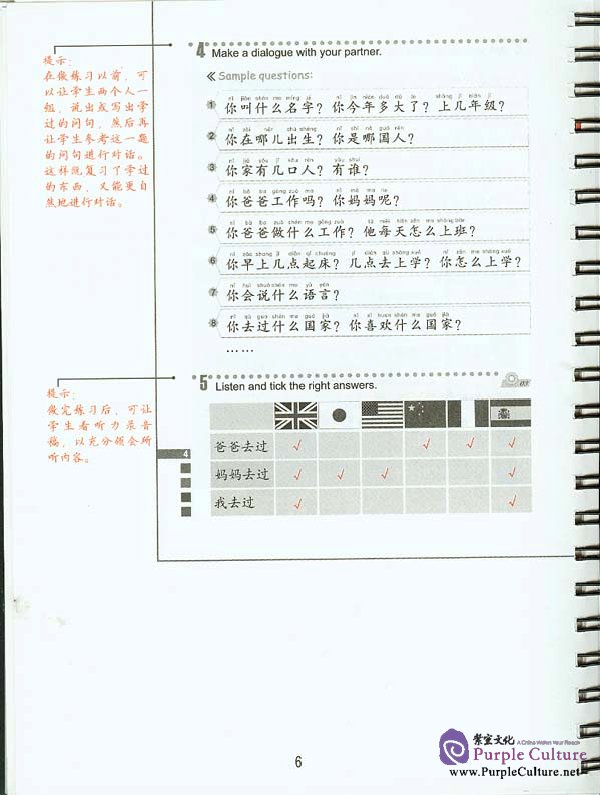 提示：
在做练习以前，可
以让学生两个人一
组，说出或写出学
过的问句，然后再
让学生参考这一题
的问句进行对话。
这样既复习了学过
的东西，又能更自
然地进行对话。
4 Make a dialogue with your partner.
≪ Sample questions:
nǐ jiào shén me míng zi nǐ jīn nián duō dà le shàng jǐ nián jí
1 你叫什么名字？你今年多大了？上几年级？
nǐ zài nǎr chū shēng nǐ shì nǎ guó rén
2 你在哪儿出生？你是哪国人？
nǐ jiā yǒu jǐ kǒu rén yǒu shuí
3 你家有几口人？有谁？
nǐ bà ba gōng zuò ma nǐ mā ma ne
4 你爸爸工作吗？你妈妈呢？
nǐ bà ba zuò shén me gōng zuò tā měi tiān zěn me shàng bān
5 你爸爸做什么工作？他每天怎么上班？
nǐ zǎo shang jǐ diǎn qǐ chuáng jǐ diǎn qù shàng xué nǐ zěn me shàng xué
6 你早上几点起床？几点去上学？你怎么上学？
nǐ huì shuō shén me yǔ yán
7 你会说什么语言？
nǐ qù guo shén me guó jiā nǐ xǐ huan shén me guó jiā
8 你去过什么国家？你喜欢什么国家？
……
提示：
做完练习后，可让
学生看听力录音
稿，以充分领会所
听内容。
5 Listen and tick the right answers.
03
爸爸去过 ✓ ✓ ✓ ✓
4
妈妈去过 ✓ ✓ ✓ ✓
我去过 ✓ ✓
6
紫宸文化 A China Within Your Reach
Purple Culture
www.PurpleCulture.net